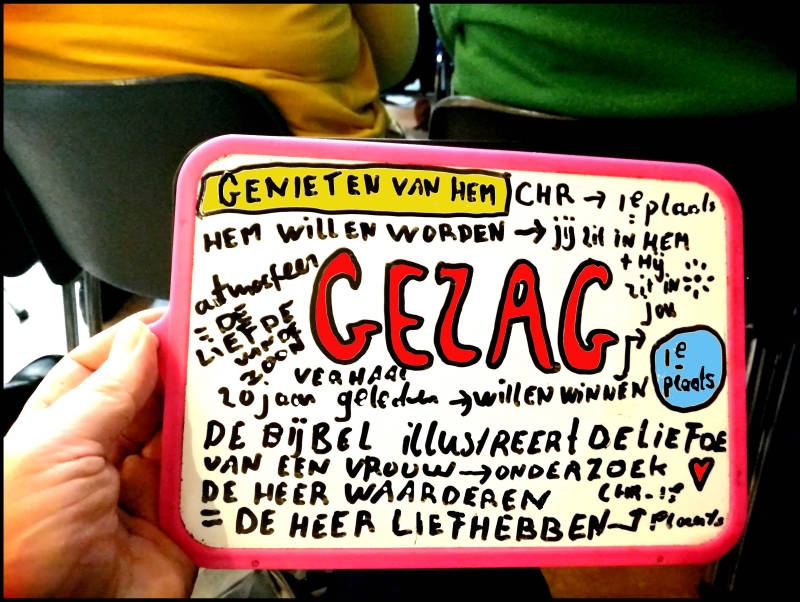 GENIETEN VAN HEM CHR → 1e plaats
HEM WILLEN WORDEN → jij zit IN HEM
+ Hij
zit IN
jou
atmosfeer
= DE
LIEFDE
VAN DE
ZOON
GEZAG
1e
plaats
VERHAAL
20 jaar geleden → WILLEN WINNEN
DE BIJBEL illUSTREERT DE LIEFDE
VAN EEN VROUW → ONDERZOEK
DE HEER WAARDEREN CHR. 1e
= DE HEER LIEFHEBBEN → plaats